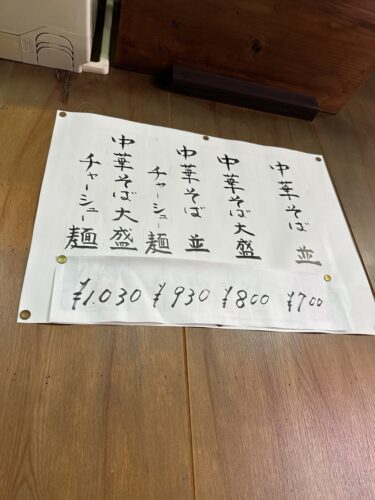 中華そば 並
中華そば大盛
中華そば 並
チャーシュー麺
中華そば大盛
チャーシュー麺
¥700
¥800
¥930
¥1.030